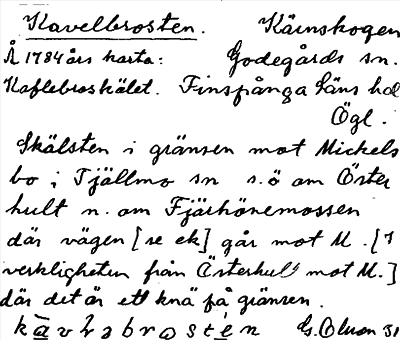 Kavelbrosten. Kärnskogen
Å 1784 års karta: Godegårds sn.
Kaflebroskälet. Finspånga läns hd
Ögl.
Skälsten i gränsen mot Mickels
bo i Tjällmo sn s.ö om Öster
hult n. om Fjärhönemossen
där vägen [se ek] går mot M. [I
verkligheten från Österhult mot M.]
där det är ett knä på gränsen.
Olson 31